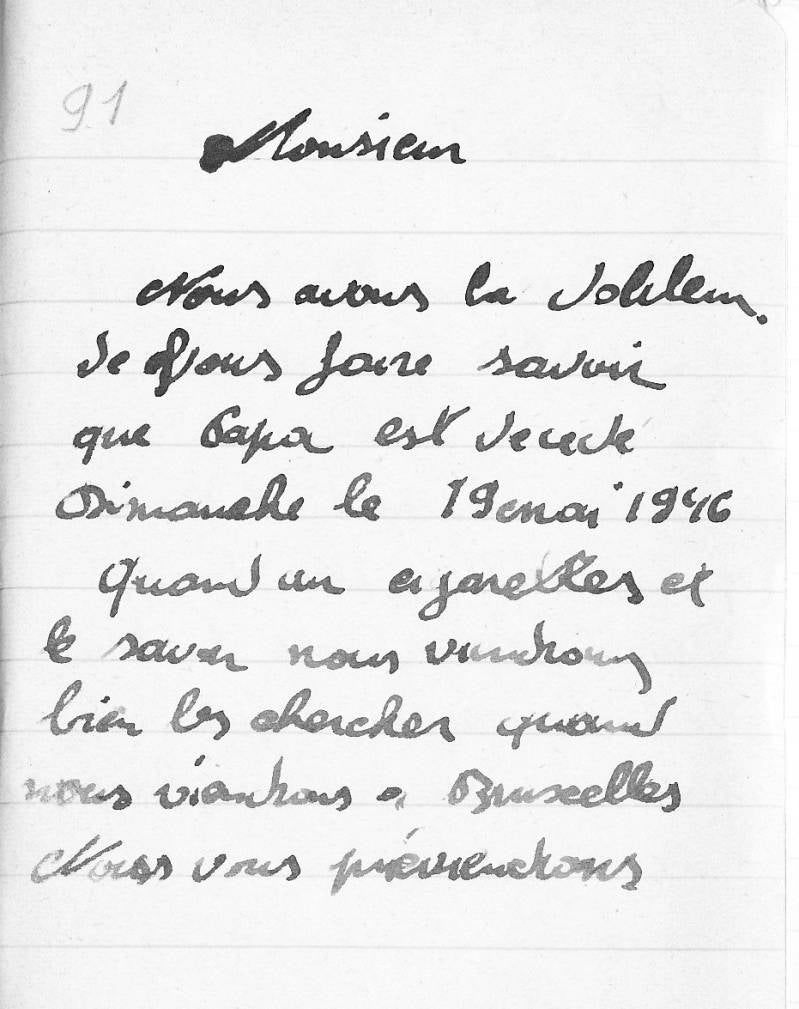 91
Monsieur
Nous avons la doleleur
de Vous faire savoir
que Papa est decede
Dimanche le 19 mai 1946
Quand au cigarettes et
le savon nous viendrons
bien les chercher quand
nous viendrons a Bruxelles
Nous vous préviendrons